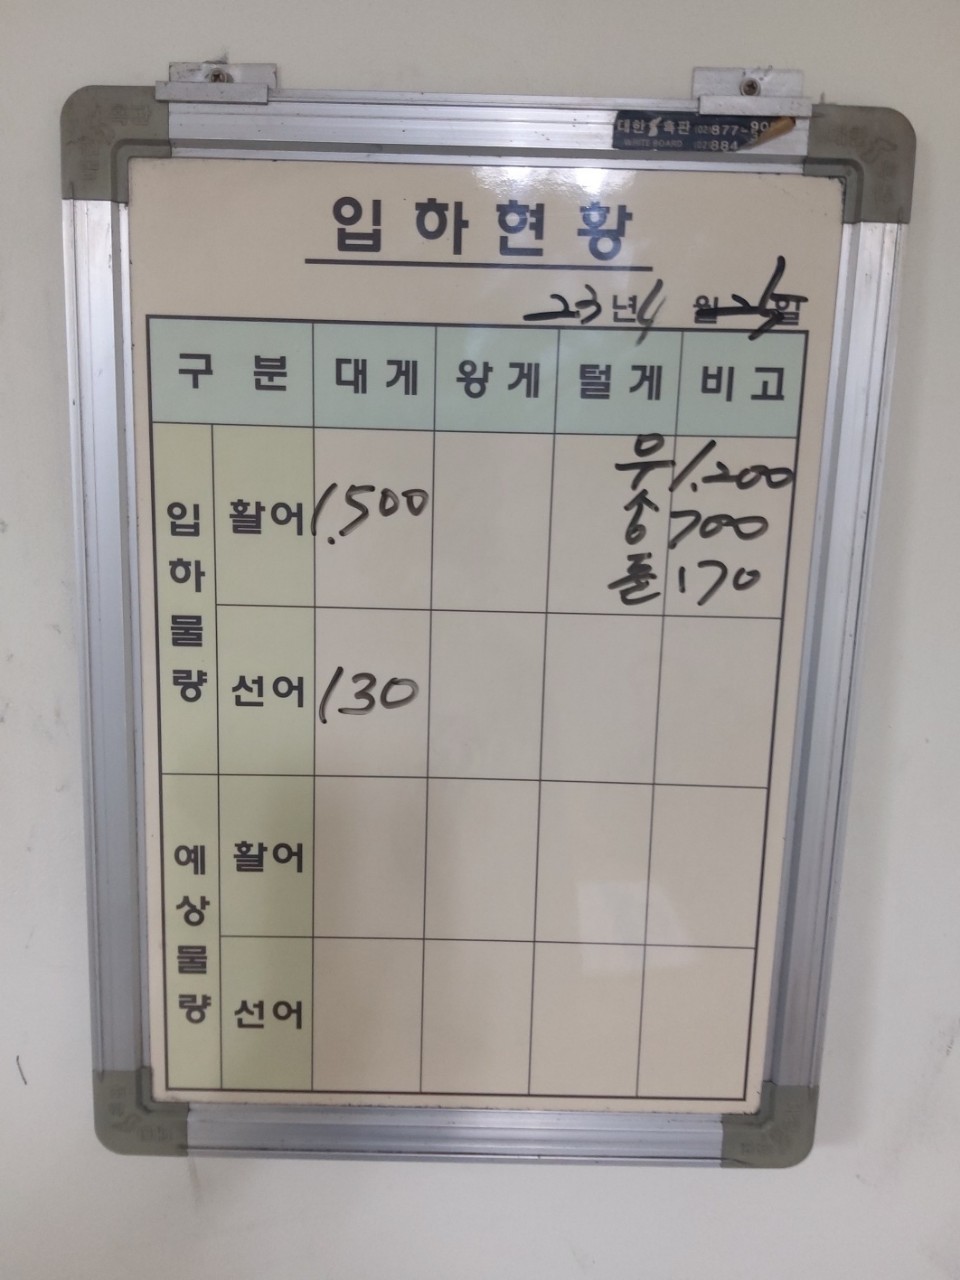 대한 흑판 (02)877-90
WHITE BOARD (02)884
입하현황
23년 4월 21일
구 분 대게 왕게 털게 비고
입하물량
활어 1.500
우 1.200
송 700
돌 170
선어 130
예상물량
활어
선어